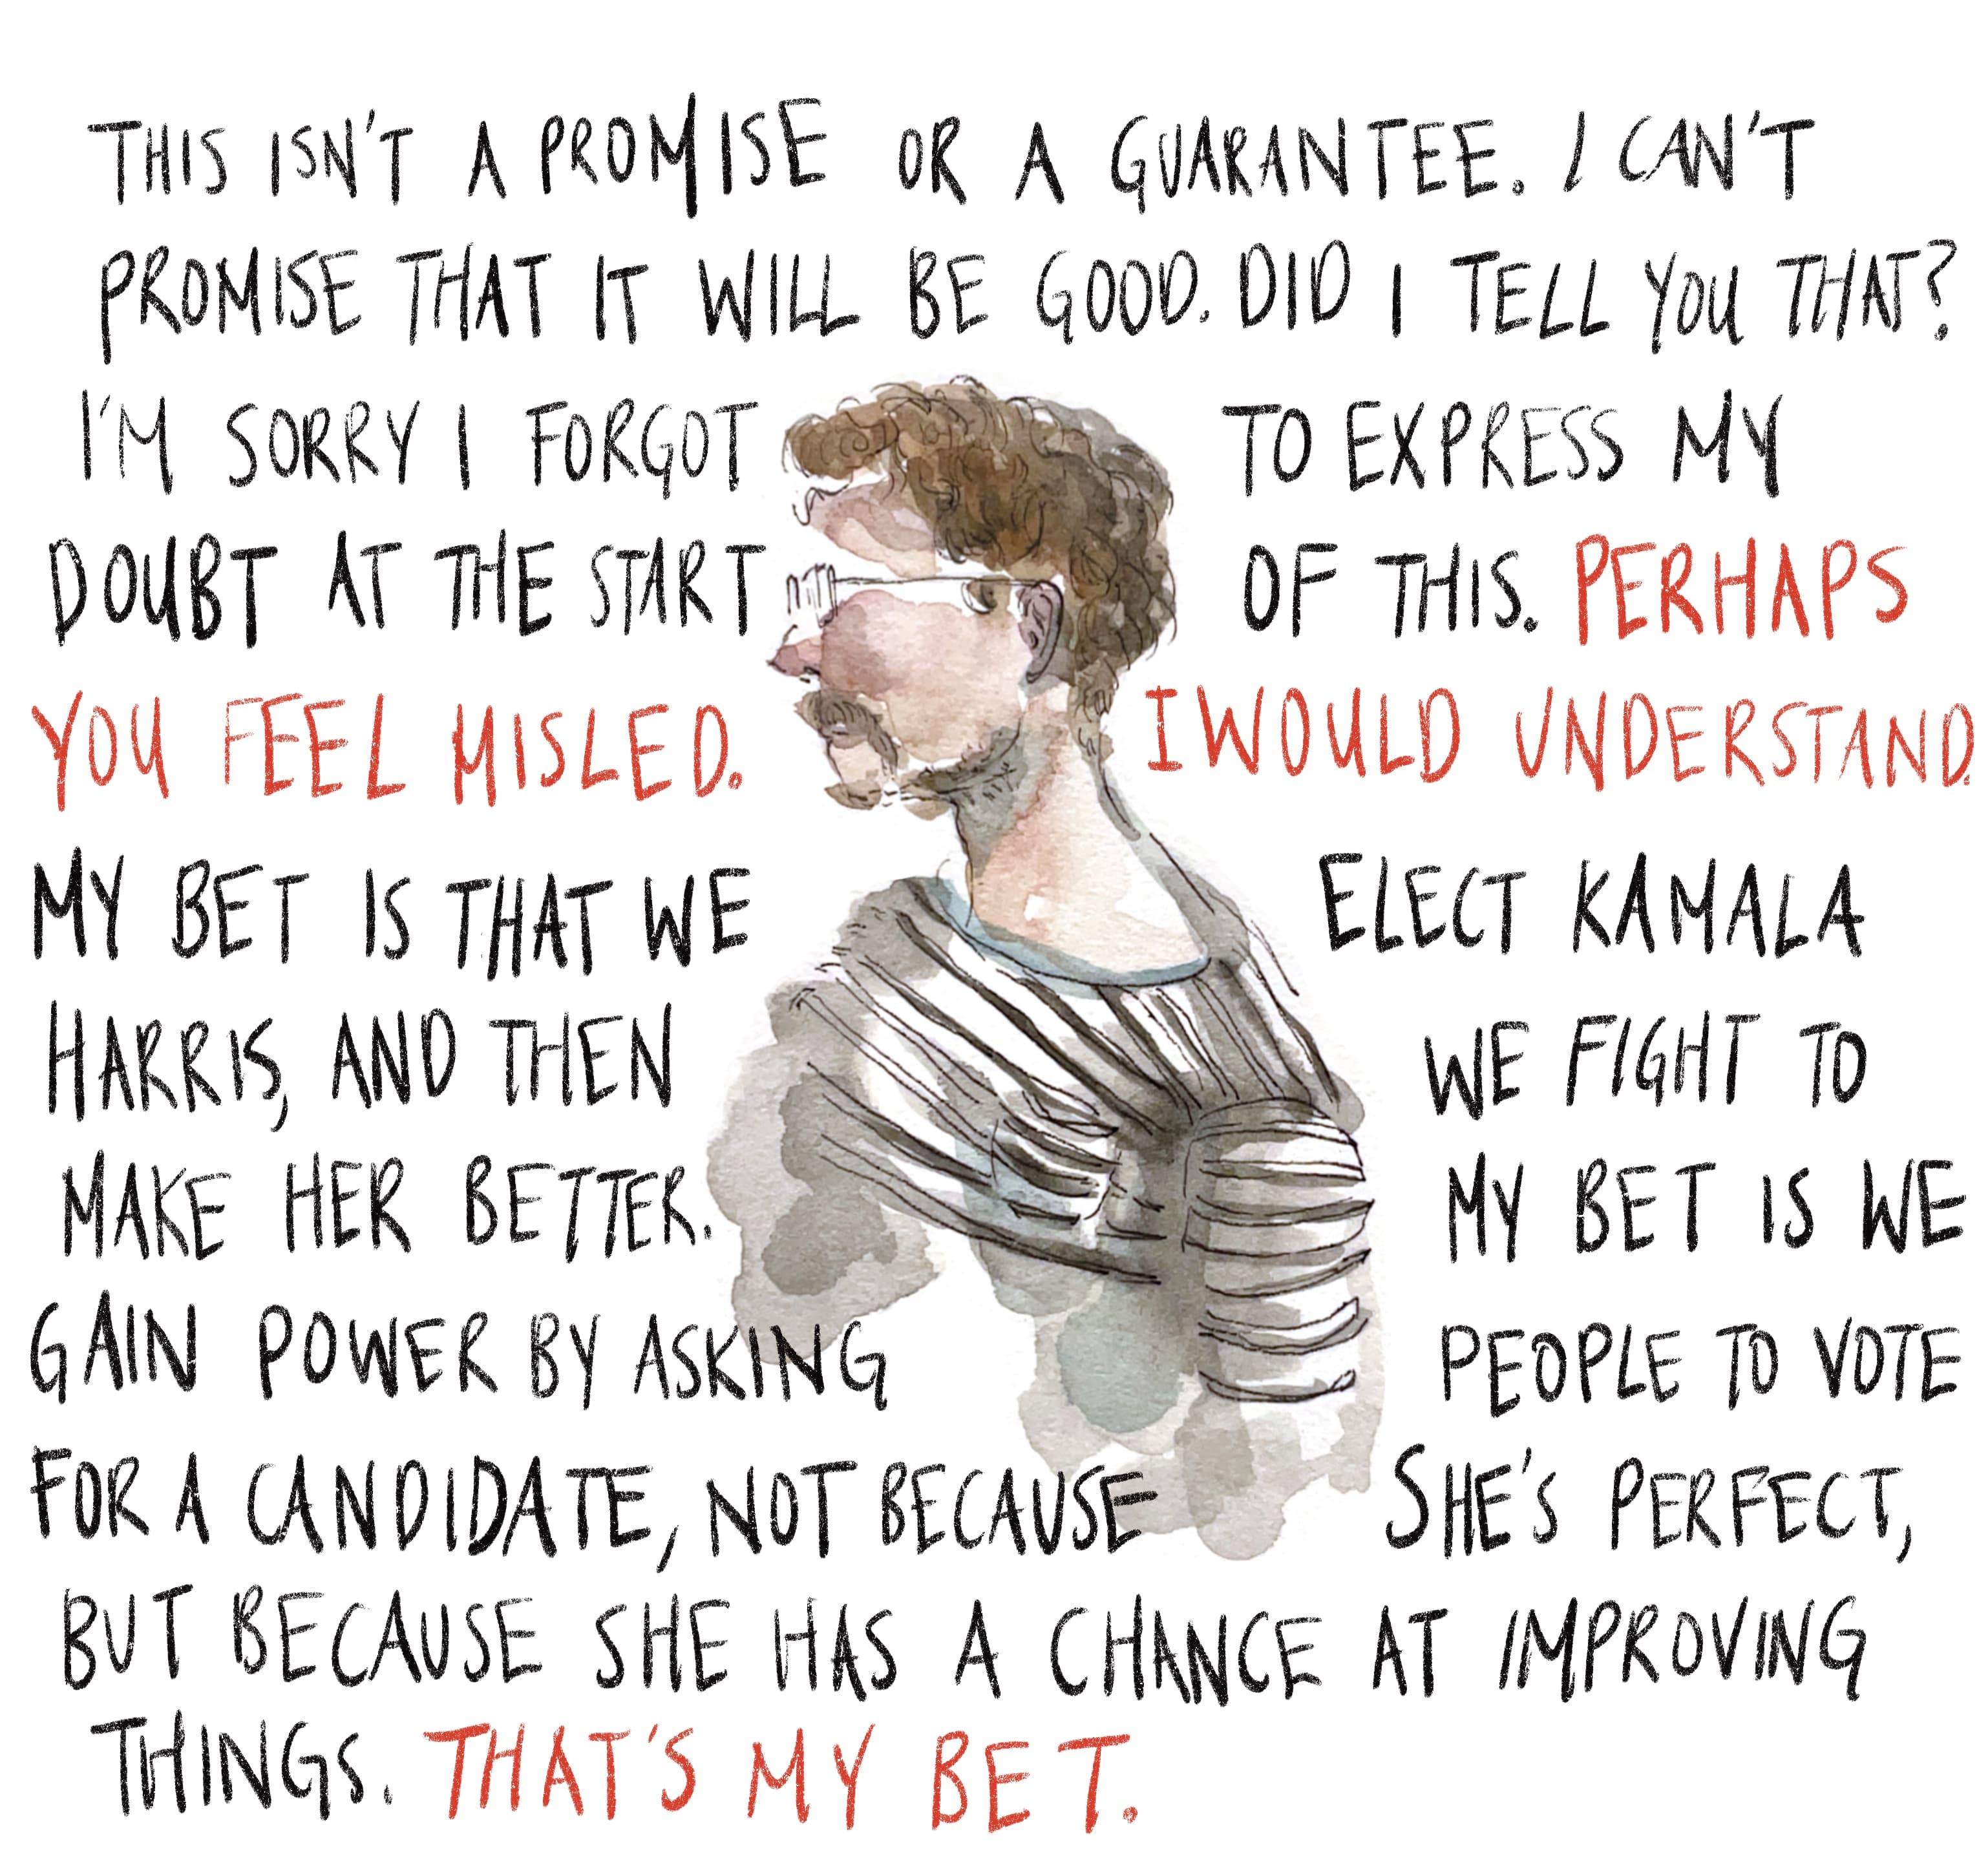 THIS ISN'T A PROMISE OR A GUARANTEE. I CAN'T
PROMISE THAT IT WILL BE GOOD. DID I TELL YOU THAT?
I'M SORRY I FORGOT TO EXPRESS MY
DOUBT AT THE START OF THIS. PERHAPS
YOU FEEL MISLED. I WOULD UNDERSTAND.
MY BET IS THAT WE ELECT KAMALA
HARRIS, AND THEN WE FIGHT TO
MAKE HER BETTER. MY BET IS WE
GAIN POWER BY ASKING PEOPLE TO VOTE
FOR A CANDIDATE, NOT BECAUSE SHE'S PERFECT,
BUT BECAUSE SHE HAS A CHANCE AT IMPROVING
THINGS. THAT'S MY BET.